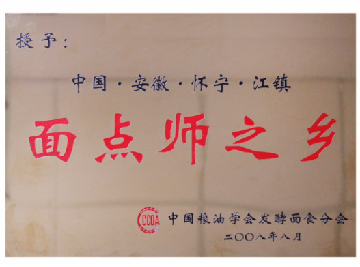 授予：
中国·安徽·怀宁·江镇
面点师之乡
CCOA 中国粮油学会发酵面食分会
二〇〇八年八月